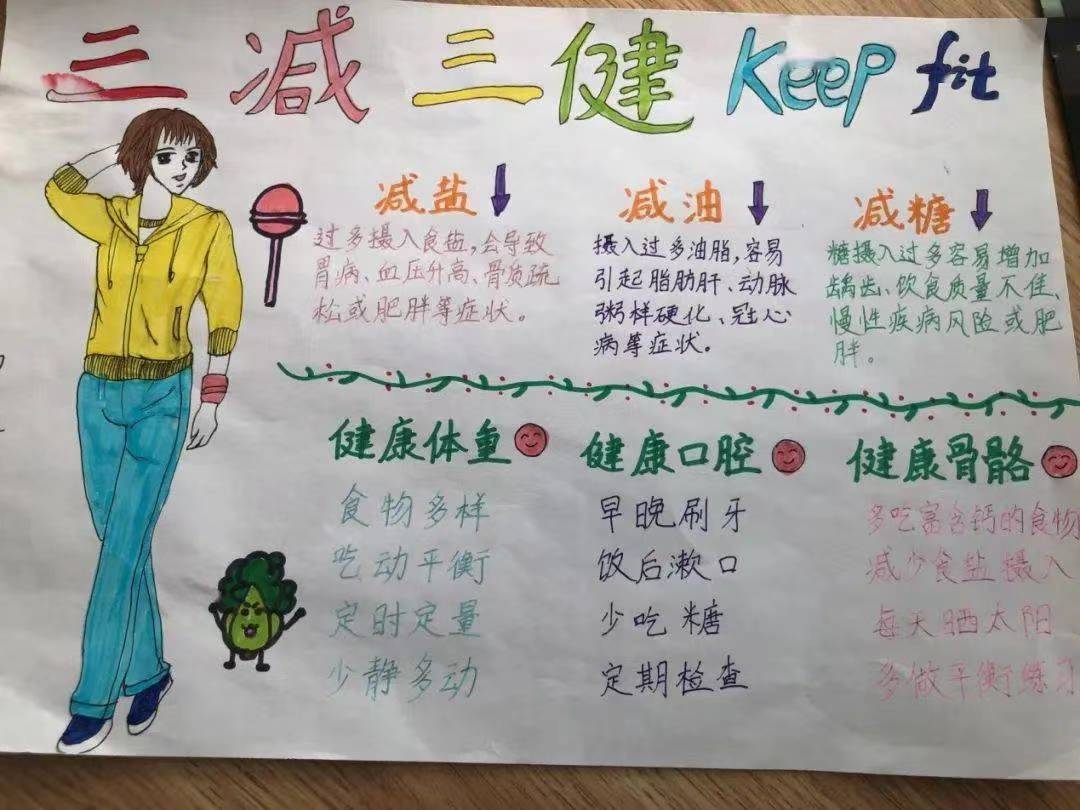 三减三健 Keep fit
减盐
过多摄入食盐,会导致
胃病、血压升高、骨质疏
松或肥胖等症状。
减油
摄入过多油脂,容易
引起脂肪肝、动脉
粥样硬化、冠心
病等症状。
减糖
糖摄入过多容易增加
龋齿、饮食质量不佳、
慢性疾病风险或肥
胖。
健康体重
食物多样
吃动平衡
定时定量
少静多动
健康口腔
早晚刷牙
饭后漱口
少吃糖
定期检查
健康骨骼
多吃富含钙的食物
减少食盐摄入
每天晒太阳
多做平衡练习